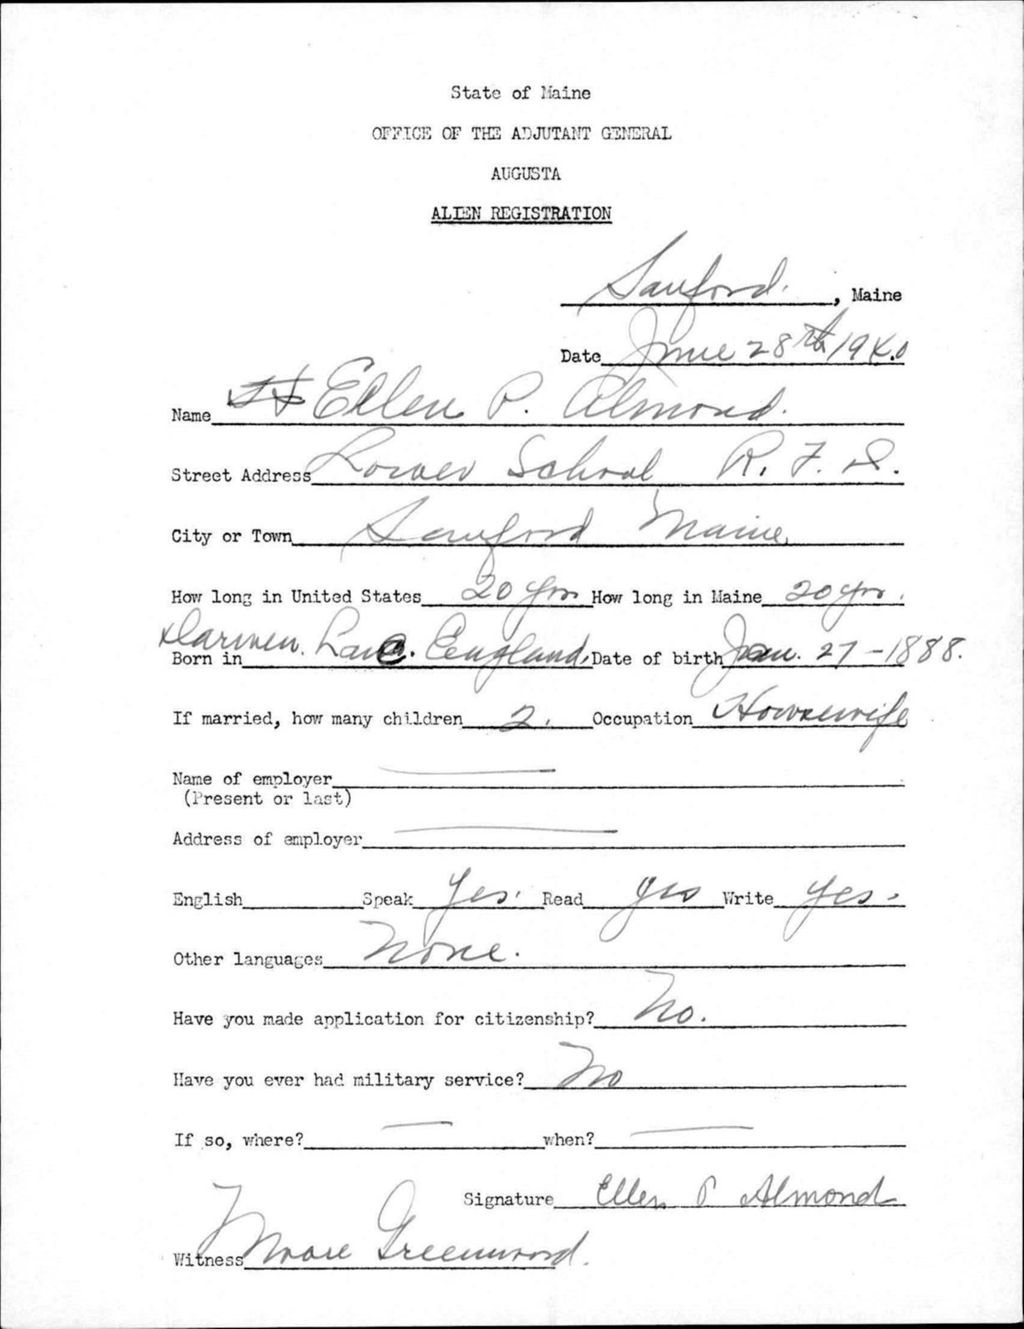 State of Maine
OFFICE OF THE ADJUTANT GENERAL
AUGUSTA
ALIEN REGISTRATION
Sanford. , Maine
Date June 28th 1940
Name Ellen P. Almond.
Street Address Lower School R. F. D.
City or Town Sanford Maine,
How long in United States 20 yrs How long in Maine 20 yrs.
Born in Darwen. Lanc. England. Date of birth Jan. 27-1888.
If married, how many children 2. Occupation Housewife
Name of employer
(Present or last)
Address of employer
English Speak Yes. Read yes Write yes.
Other languages None.
Have you made application for citizenship? No.
Have you ever had military service? No
If so, where? when?
Signature Ellen P Almond
Witness Greenwood.